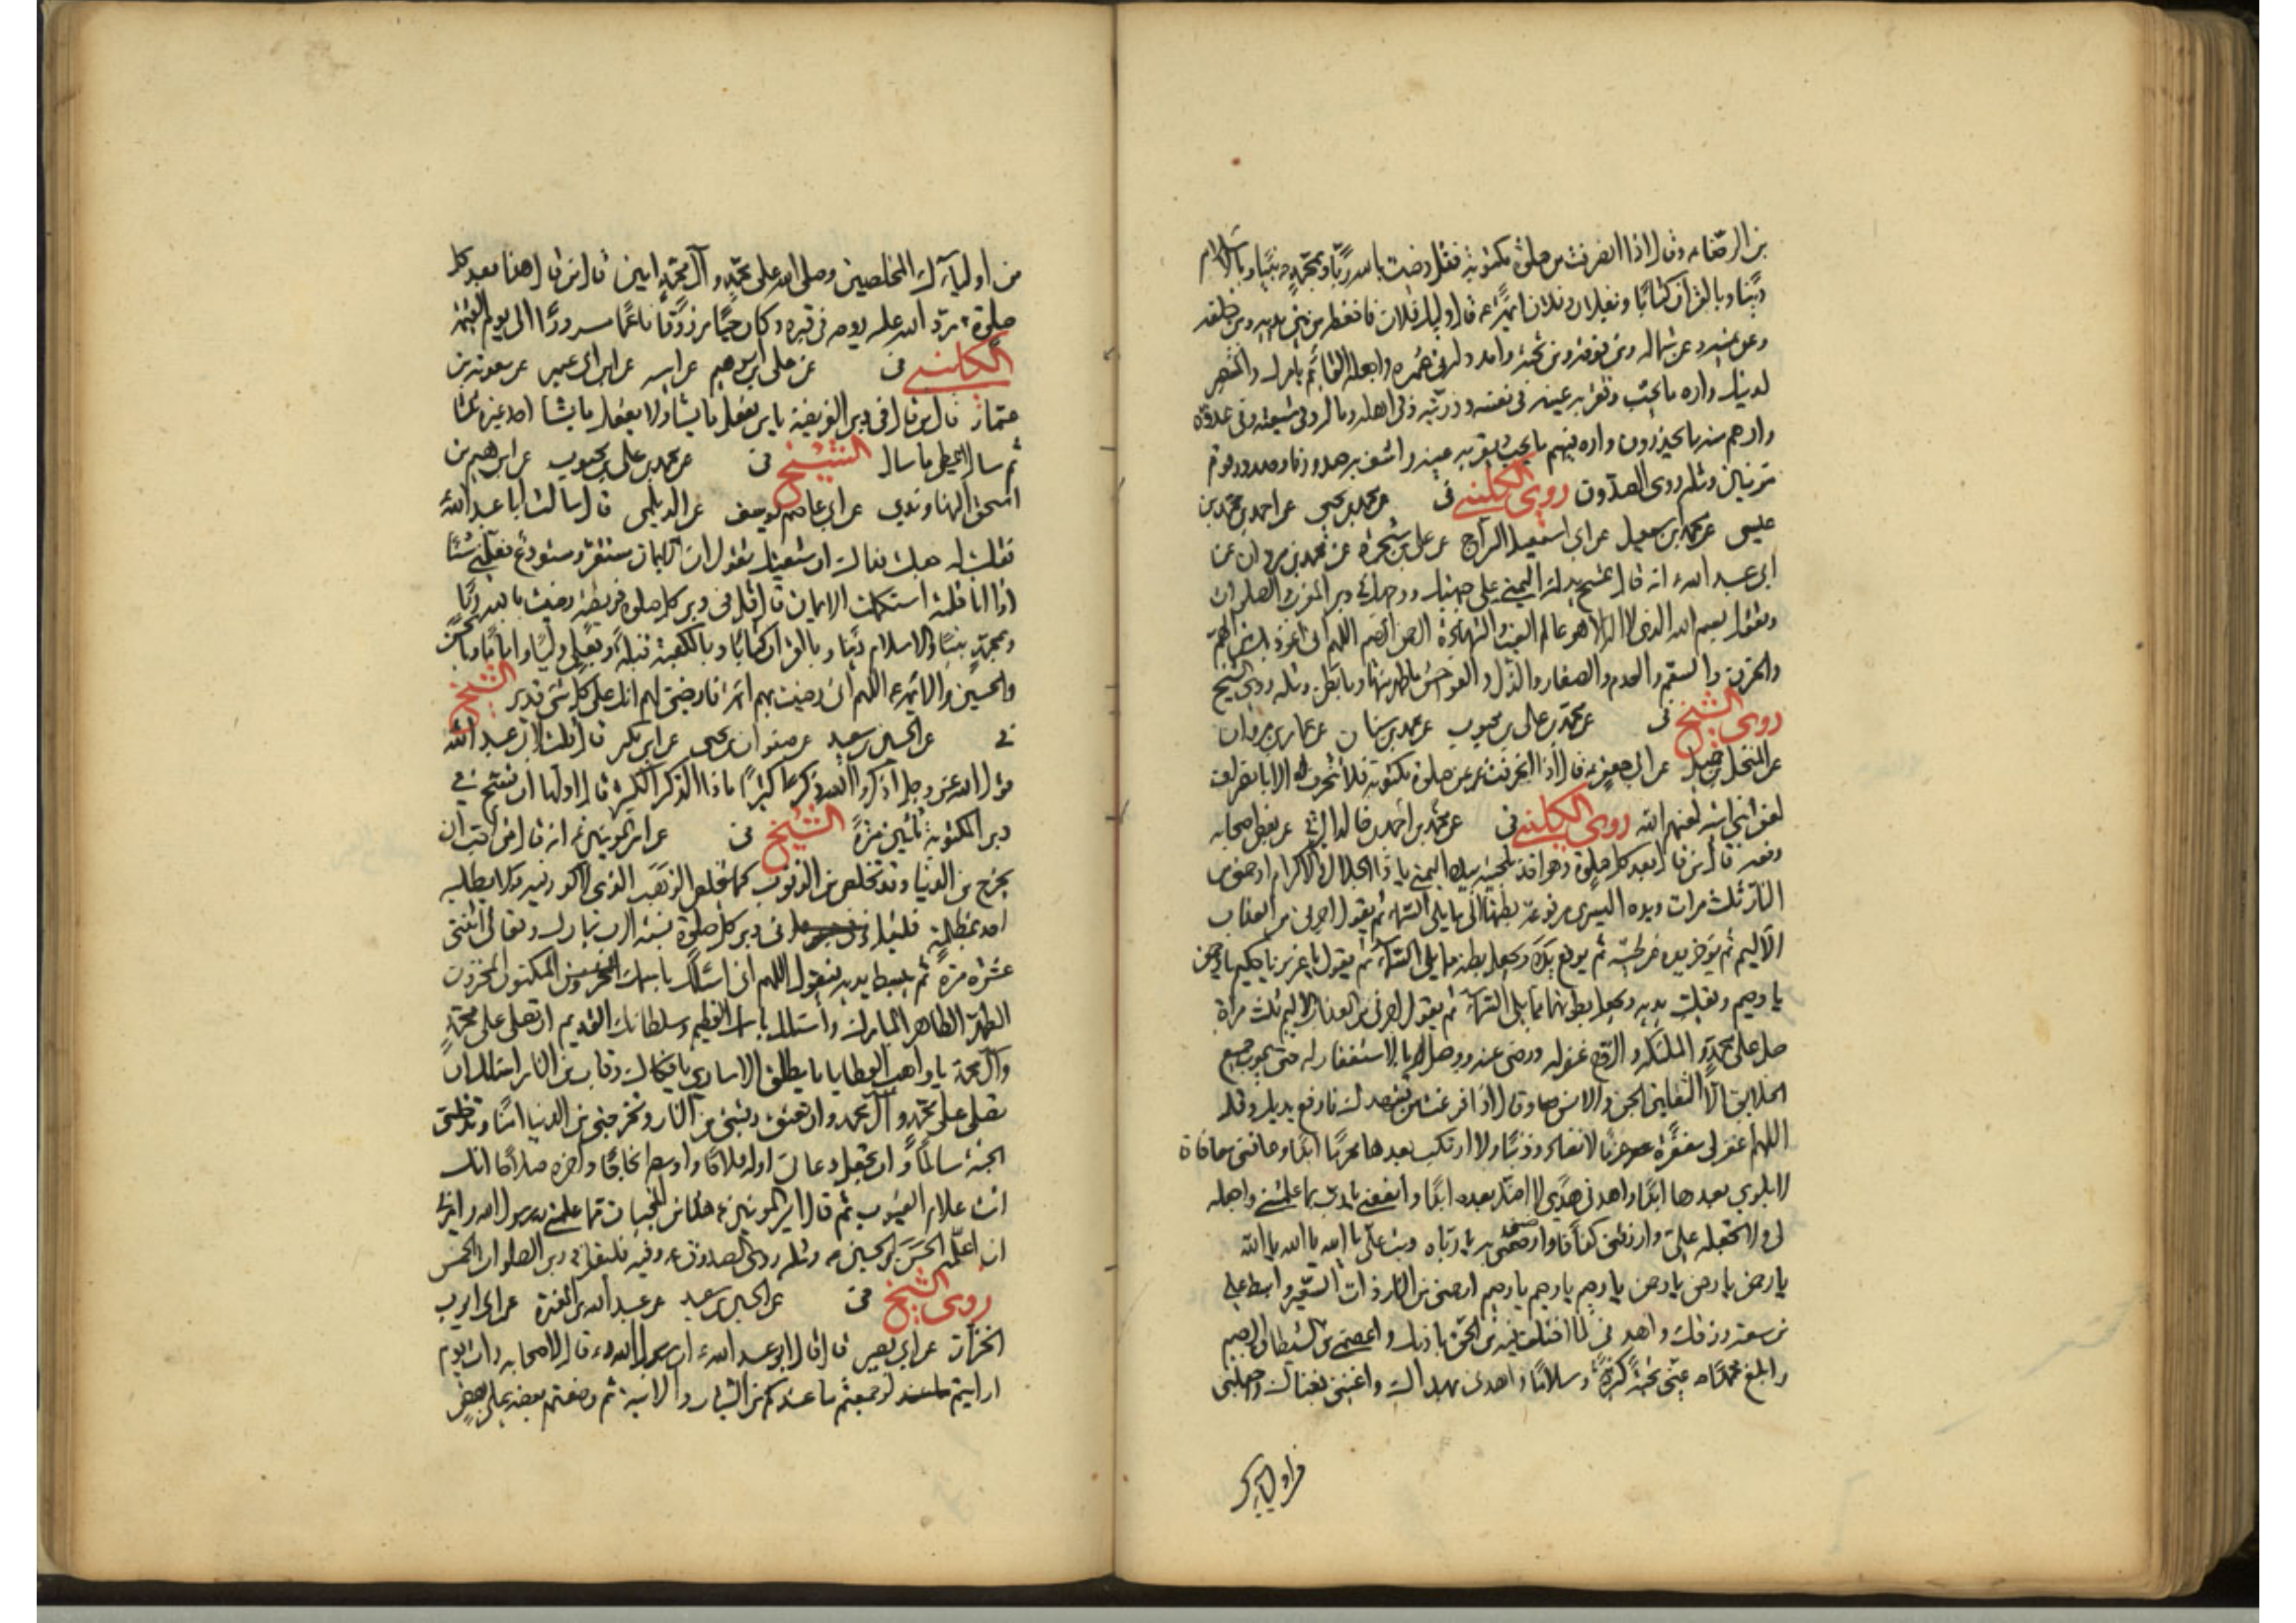 من الرضا ع وقال اذا انصرفت من صلوة مكتوبة فقل رضيت بالله ربا وبمحمد ص نبيا وبالاسلام
دينا وبالقرآن كتابا وبفلان وفلان ائمة ع قال وليك فلان فاحفظه من بين يديه ومن خلفه
وعن يمينه وعن شماله ومن فوقه ومن تحته وامدد له في عمره واجعله القائم بامرك والمنتصر
لدينك واره ما يحب وتقر به عينه في نفسه وذريته وفي اهله وماله وفي شيعته وفي عدوه
وارهم منه ما يحذرون واره فيهم ما يحب وتقر به عينه واشف به صدورنا وصدور قوم
مؤمنين ومثله روى الصدوق روى الكليني في عن محمد بن يحيى عن احمد بن محمد بن
عيسى عن محمد بن اسمعيل عن ابي اسمعيل السراج عن علي بن شجرة عن محمد بن مروان عن
ابي عبد الله ع انه قال تمسح بيدك اليمنى على جبهتك ووجهك في دبر المغرب والصلوات
وتقول بسم الله الذي لا اله الا هو عالم الغيب والشهادة الرحمن الرحيم اللهم اني اعوذ بك من الهم
والحزن والسقم والعدم والصغار والذل والفواحش ما ظهر منها وما بطن ومثله روى الشيخ
روى الشيخ في عن محمد بن علي بن محبوب عن محمد بن سنان عن عمار بن مروان
عن المنخل بن جميل عن ابي جعفر ع قال اذا انحرفت عن صلوة مكتوبة فلا تنحرف الا بانصراف
لعن بني امية لعنهم الله روى الكليني في عن محمد بن احمد بن خالد البرقي عن بعض اصحابه
رفعه قال من قال بعد كل صلوة وهو اخذ بلحيته بيده اليمنى يا ذا الجلال والاكرام ارحمني من
النار ثلث مرات ويده اليسرى مرفوعة بطنها الى ما يلي السماء ثم يقول اجرني من العذاب
الاليم ثم يؤخر يده عن لحيته ثم يرفع يده ويجعل بطنها مما يلي السماء ثم يقول يا عزيز يا كريم يا رحمن
يا رحيم ويقلب يديه ويجعل بطونهما مما يلي السماء ثم يقول اجرني من العذاب الاليم ثلث مراة
صل على محمد والملئكة والروح غفر له ورضي عنه ووصل بالاستغفار له حتى يموت جميع
الخلايق الا الثقلين الجن والانس وقال اذا فرغت من تشهدك فارفع يديك وقل
اللهم اغفر لي مغفرة عزما لا تغادر ذنبا ولا ارتكب بعدها محرما ابدا وعافني معافاة
لا بلوى بعدها ابدا واهدني هدى لا اضل بعده ابدا وانفعني يا رب بما علمتني واجعله
لي ولا تجعله علي وارزقني كفافا وارضني به يا رباه وتب علي يا الله يا الله يا الله
يا رحمن يا رحمن يا رحمن يا رحيم يا رحيم يا رحيم ارحمني من النار ذات السعير وابسط علي
من سعة رزقك واهدني لما اختلف فيه من الحق باذنك واعصمني من الشيطان الرجيم
وابلغ محمدا ص عني تحية كثيرة وسلاما واهدني بهداك واغنني بغناك واجعلني
من اوليائك
من اوليائك المخلصين وصلى الله على محمد وآل محمد امين قال من قال هذا بعد كل
صلوة رد الله عليه روحه في قبره وكان حيا مرزوقا ناعما مسرورا الى يوم القيمة
الكليني في عن علي بن ابراهيم عن ابيه عن ابن ابي عمير عن معوية بن
عمار قال من قال في دبر الفريضة يا من يفعل ما يشاء ولا يفعل ما يشاء احد غيره ثلثا
ثم سال اعطي ما سال الشيخ في عن محمد بن علي بن محبوب عن ابراهيم بن
اسحق النهاوندي عن ابي عاصم يوسف عن الديلمي قال سالت ابا عبد الله ع
فقلت له جعلت فداك ان شيعتك تقول ان الايمان مستقر ومستودع فعلمني شيئا
اذا انا قلته استكملت الايمان قال قل في دبر كل صلوة فريضة رضيت بالله ربا
وبمحمد نبيا وبالاسلام دينا وبالقرآن كتابا وبالكعبة قبلة وبعلي وليا واماما وبالحسن
والحسين والائمة ع اللهم اني رضيت بهم ائمة فارضني لهم انك على كل شيء قدير الشيخ
في عن الحسين بن سعيد عن صفوان بن يحيى عن ابن بكير قال قلت لابي عبد الله
قول الله عز وجل اذكروا الله ذكرا كثيرا ما ذا الذكر الكثير قال اولها ان تسبح في
دبر المكتوبة ثلثين مرة الشيخ في عن امير المؤمنين ع انه قال من احب ان
يخرج من الدنيا وقد تخلص من الذنوب كما يخلص الذهب الذي لا كدر فيه ولا يطلبه
احد بمظلمة فليقل في دبر كل صلوة نسبة الرب تبارك وتعالى اثنتي
عشرة مرة ثم يبسط يديه فيقول اللهم اني اسئلك باسمك المكنون المخزون
الطهر الطاهر المبارك واسئلك باسمك العظيم وسلطانك القديم ان تصلي على محمد
وآل محمد يا واهب العطايا يا مطلق الاسارى يا فكاك رقاب من النار اسئلك ان
تصلي على محمد وآل محمد وان تعتق رقبتي من النار وتخرجني من الدنيا امنا وتدخلني
الجنة سالما وان تجعل دعائي اوله فلاحا واوسطه نجاحا واخره صلاحا انك
انت علام الغيوب ثم قال امير المؤمنين ع هذا من المخبيات مما علمني رسول الله وامرني
ان اعلمه الحسن والحسين ع ومثله روى الصدوق ع وفيه فليقل في دبر الصلوات الخمس
روى الشيخ في عن الحسين بن سعيد عن عبد الله بن المغيرة عن ابي ايوب
الخزاز عن ابي بصير قال قال ابو عبد الله ع ان رسول الله ص قال لاصحابه ذات يوم
ارايتم لو جمعتم ما عندكم من الثياب والانية ثم وضعتم بعضه على بعض